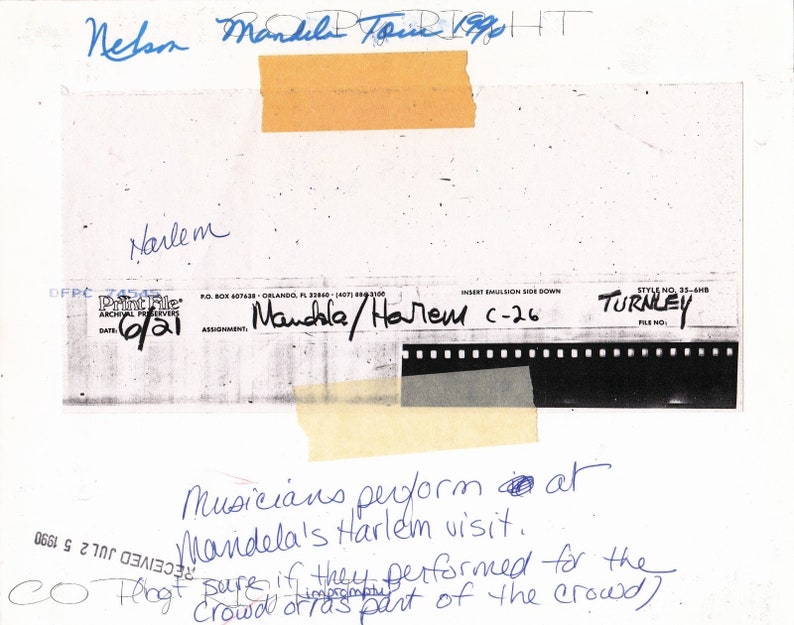 COPYRIGHT
Nelson Mandela Tour 1990
Harlem
DFPC 74545
Print File®
ARCHIVAL PRESERVERS
P.O. BOX 607638 • ORLANDO, FL 32860 • (407) 884-3100
INSERT EMULSION SIDE DOWN
STYLE NO. 35-6HB
DATE: 6/21
ASSIGNMENT: Mandela/Harlem C-26
TURNLEY
FILE NO:
Musicians perform at
Mandela's Harlem visit.
(not sure if they performed for the
crowd or impromptu as part of the crowd)
RECEIVED JUL 25 1990
COPYRIGHT